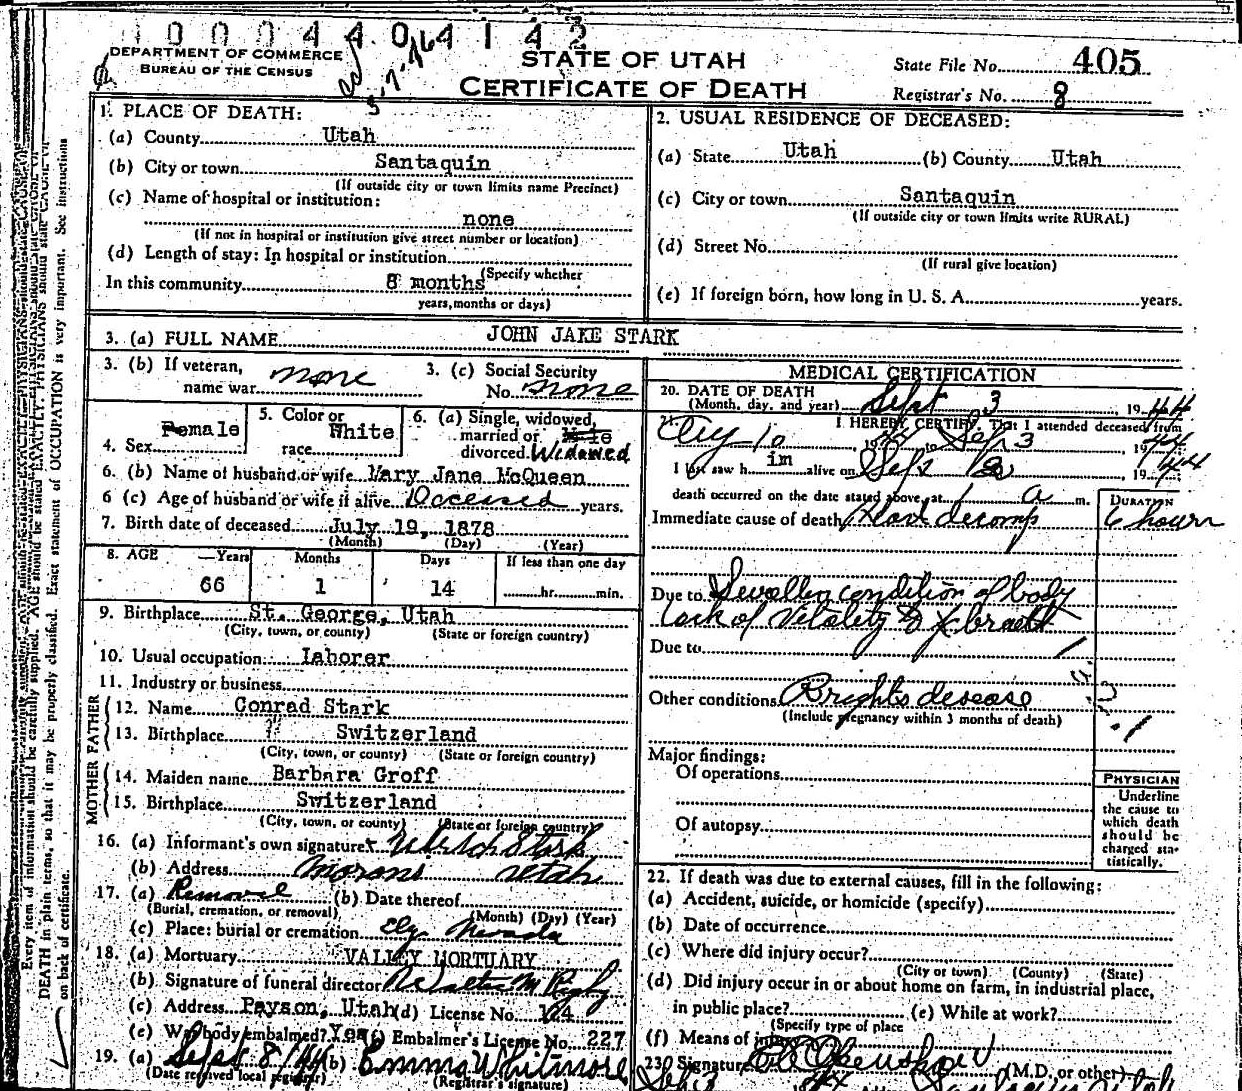 1 0 0 0 4 4 0 4 1 4 2
DEPARTMENT OF COMMERCE
BUREAU OF THE CENSUS
STATE OF UTAH
CERTIFICATE OF DEATH
State File No. 405
Registrar's No. 8
1. PLACE OF DEATH:
(a) County Utah
(b) City or town Santaquin
(If outside city or town limits name Precinct)
(c) Name of hospital or institution:
none
(If not in hospital or institution give street number or location)
(d) Length of stay: In hospital or institution
(Specify whether
In this community 8 months
years, months or days)
2. USUAL RESIDENCE OF DECEASED:
(a) State Utah (b) County Utah
(c) City or town Santaquin
(If outside city or town limits write RURAL)
(d) Street No.
(If rural give location)
(e) If foreign born, how long in U. S. A. years.
3. (a) FULL NAME JOHN JAKE STARK
3. (b) If veteran, name war none
3. (c) Social Security No. none
4. Sex Female
5. Color or race White
6. (a) Single, widowed, married or divorced. Widowed
6. (b) Name of husband or wife Mary Jane McQueen
6 (c) Age of husband or wife if alive Deceased years.
7. Birth date of deceased July 19, 1878
(Month) (Day) (Year)
8. AGE Years Months Days If less than one day
66 1 14 hr. min.
9. Birthplace St. George, Utah
(City, town, or county) (State or foreign country)
10. Usual occupation Laborer
11. Industry or business
FATHER
12. Name Conrad Stark
13. Birthplace Switzerland
(City, town, or county) (State or foreign country)
MOTHER
14. Maiden name Barbara Groff
15. Birthplace Switzerland
(City, town, or county) (State or foreign country)
16. (a) Informant's own signature Stark
(b) Address Utah
17. (a) Removal (b) Date thereof
(Burial, cremation, or removal) (Month) (Day) (Year)
(c) Place: burial or cremation Ely Nevada
18. (a) Mortuary VALLEY MORTUARY
(b) Signature of funeral director
(c) Address Payson, Utah (d) License No.
(e) Was body embalmed? Yes (f) Embalmer's License No. 227
19. (a) Sept 8/44 (b) Emma Whitmore
(Date received local registrar) (Registrar's signature)
MEDICAL CERTIFICATION
20. DATE OF DEATH
(Month, day, and year) Sept 3, 1944
21. I HEREBY CERTIFY, That I attended deceased from
to Sep 3, 1944
I last saw him alive on Sept 2, 1944
death occurred on the date stated above, at 1 a m.
DURATION
Immediate cause of death Heart decomp 6 hours
Due to Swollen condition of body
Lack of Vitality
Due to
Other conditions Brights desease
(Include pregnancy within 3 months of death)
Major findings:
Of operations
Of autopsy
PHYSICIAN
Underline
the cause to
which death
should be
charged sta-
tistically.
22. If death was due to external causes, fill in the following:
(a) Accident, suicide, or homicide (specify)
(b) Date of occurrence
(c) Where did injury occur?
(City or town) (County) (State)
(d) Did injury occur in or about home on farm, in industrial place,
in public place? (e) While at work?
(Specify type of place
(f) Means of injury
23. Signature (M.D. or other)
Every item of information should be carefully supplied. AGE should be stated EXACTLY. PHYSICIANS should state CAUSE OF
DEATH in plain terms, so that it may be properly classified. Exact statement of OCCUPATION is very important. See instructions
on back of certificate.